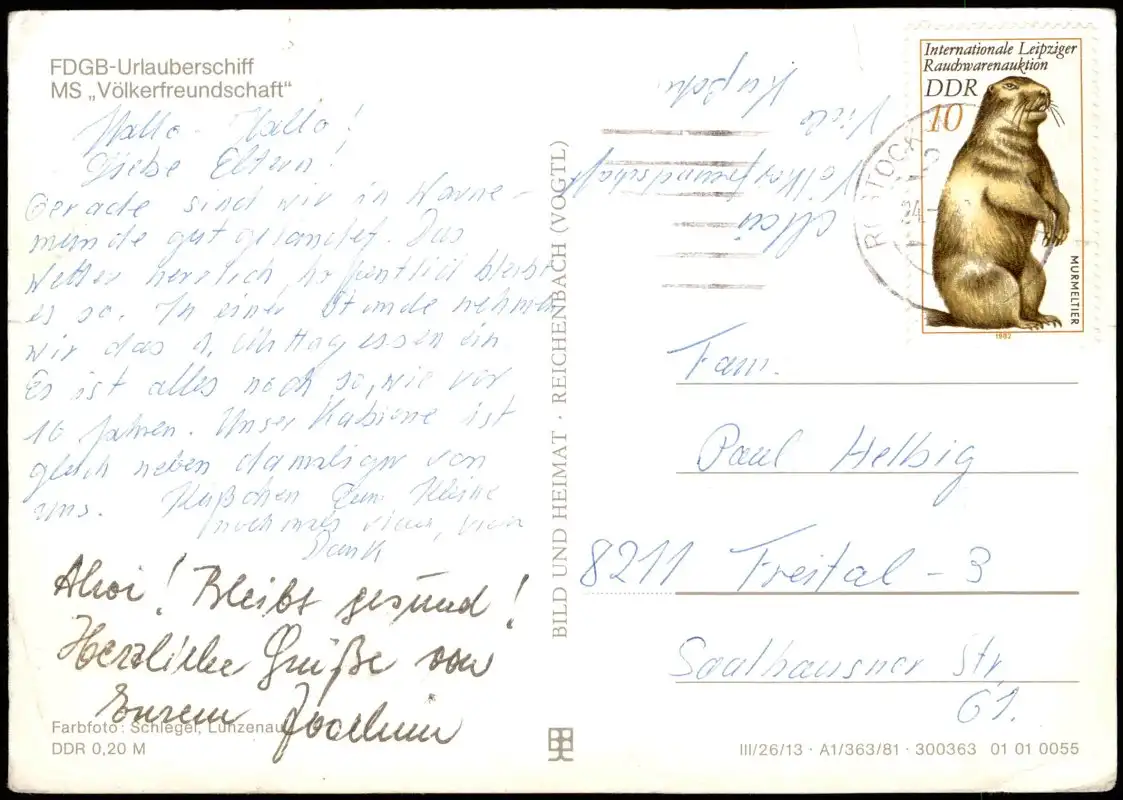 FDGB-Urlauberschiff
MS „Völkerfreundschaft"
Hallo - Hallo!
Liebe Eltern!
Gerade sind wir in Warne-
münde gut gelandet. Das
Wetter herrlich, hoffentlich bleibt
es so. In einer Stunde nehmen
wir das 1. Mittagessen ein
Es ist alles noch so, wie vor
10 Jahren. Unser Kabine ist
gleich neben damaliger von
uns. Küßchen Eure Kleine
nochmals vielen, vielen
Dank
Ahoi! Bleibt gesund!
Herzliche Grüße von
Eurem Joachim
Farbfoto: Schlegel, Lunzenau
DDR 0,20 M
BILD UND HEIMAT · REICHENBACH (VOGTL)
Viele
Völkerfreundschaft
Internationale Leipziger
Rauchwarenauktion
DDR
10
MURMELTIER
1982
ROSTOCK
Fam.
Paul Helbig
8211 Freital - 3
Saalhausner Str
61.
III/26/13 · A1/363/81 · 300363 01 01 0055